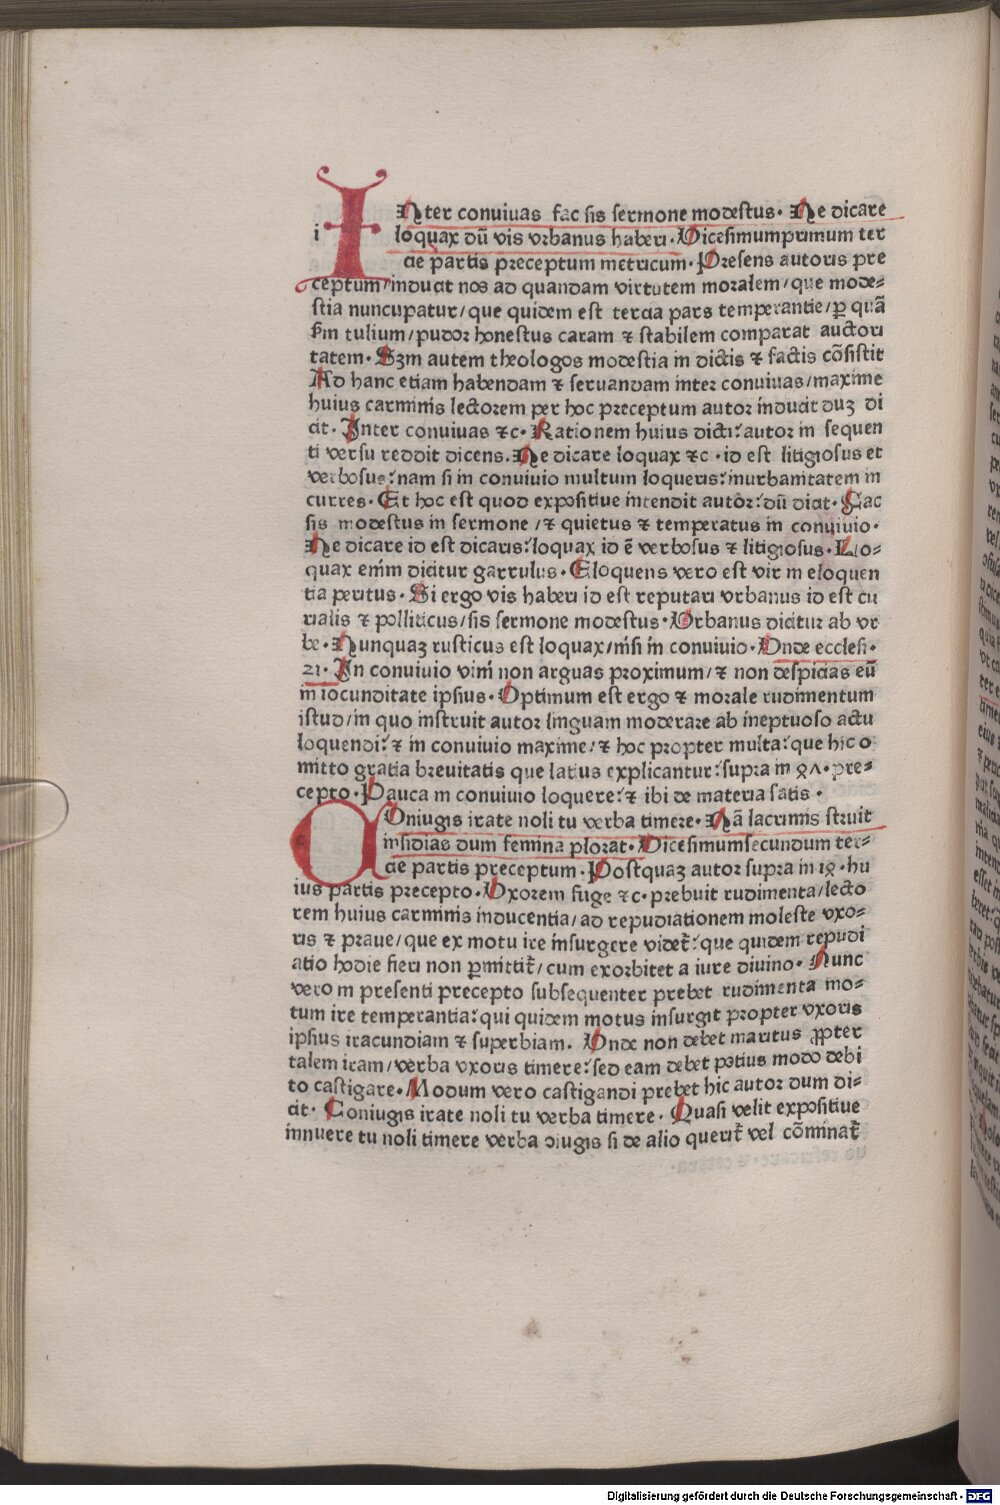 INter conuiuas fac sis sermone modestus. Ne dicare
i loquax dũ vis vrbanus haberi. Vicesimumprimum ter
cie partis preceptum metricum. Presens autoris pre
ceptum/inducit nos ad quandam virtutem moralem/que mode⸗
stia nuncupatur/que quidem est tercia pars temperantie/ꝑ quã
ẜm tulium/pudor honestus caram ⁊ stabilem comparat auctori
tatem. Sꝫm autem theologos modestia in dictis ⁊ factis cõsistit
Ad hanc etiam habendam ⁊ seruandam inter conuiuas/maxime
huius carminis lectorem per hoc preceptum autor inducit duꝫ di
cit. Inter conuiuas ⁊c. Rationem huius dicti: autor in sequen
ti versu reddit dicens. Ne dicare loquax ⁊c . id est litigiosus et
verbosus: nam si in conuiuio multum loqueris: inurbanitatem in
curres. Et hoc est quod expositiue intendit autor: dũ dicit. Fac
sis modestus in sermone /⁊ quietus ⁊ temperatus in conuiuio.
Ne dicare id est dicaris: loquax id ẽ verbosus ⁊ litigiosus. Lo⸗
quax enim dicitur garrulus. Eloquens vero est vir in eloquen
tia peritus. Si ergo vis haberi id est reputari vrbanus id est cu
rialis ⁊ polliticus/sis sermone modestus. Vrbanus dicitur ab vr
be. Nunquaꝫ rusticus est loquax/nisi in conuiuio. Vnde ecclesi.
21. In conuiuio vini non arguas proximum/⁊ non despicias eũ
in iocunditate ipsius. Optimum est ergo ⁊ morale rudimentum
istud/in quo instruit autor linguam moderare ab ineptuoso actu
loquendi: ⁊ in conuiuio maxime/⁊ hoc propter multa: que hic o
mitto gratia breuitatis que latius explicantur: supra in 97. pre⸗
cepto. Pauca in conuiuio loquere: ⁊ ibi de materia satis .
COniugis irate noli tu verba timere. Nã lacrimis struit
insidias dum femina plorat. Vicesimumsecundum ter⸗
cie partis preceptum. Postquaꝫ autor supra in 18 . hu
ius partis precepto. Vxorem fuge ⁊c. prebuit rudimenta/lecto
rem huius carminis inducentia/ad repudiationem moleste vxo⸗
ris ⁊ praue/que ex motu ire insurgere videt᷑: que quidem repudi
atio hodie fieri non ꝑmittit᷑/cum exorbitet a iure diuino. Nunc
vero in presenti precepto subsequenter prebet rudimenta mo⸗
tum ire temperantia: qui quidem motus insurgit propter vxoris
ipsius iracundiam ⁊ superbiam. Vnde non debet maritus ꝓpter
talem iram/verba vxoris timere: sed eam debet potius modo debi
to castigare. Modum vero castigandi prebet hic autor dum di⸗
cit. Coniugis irate noli tu verba timere. Quasi velit expositiue
innuere tu noli timere verba ↄiugis si de alio querit᷑ vel cõminat᷑
Digitalisierung gefördert durch die Deutsche Forschungsgemeinschaft - DFG